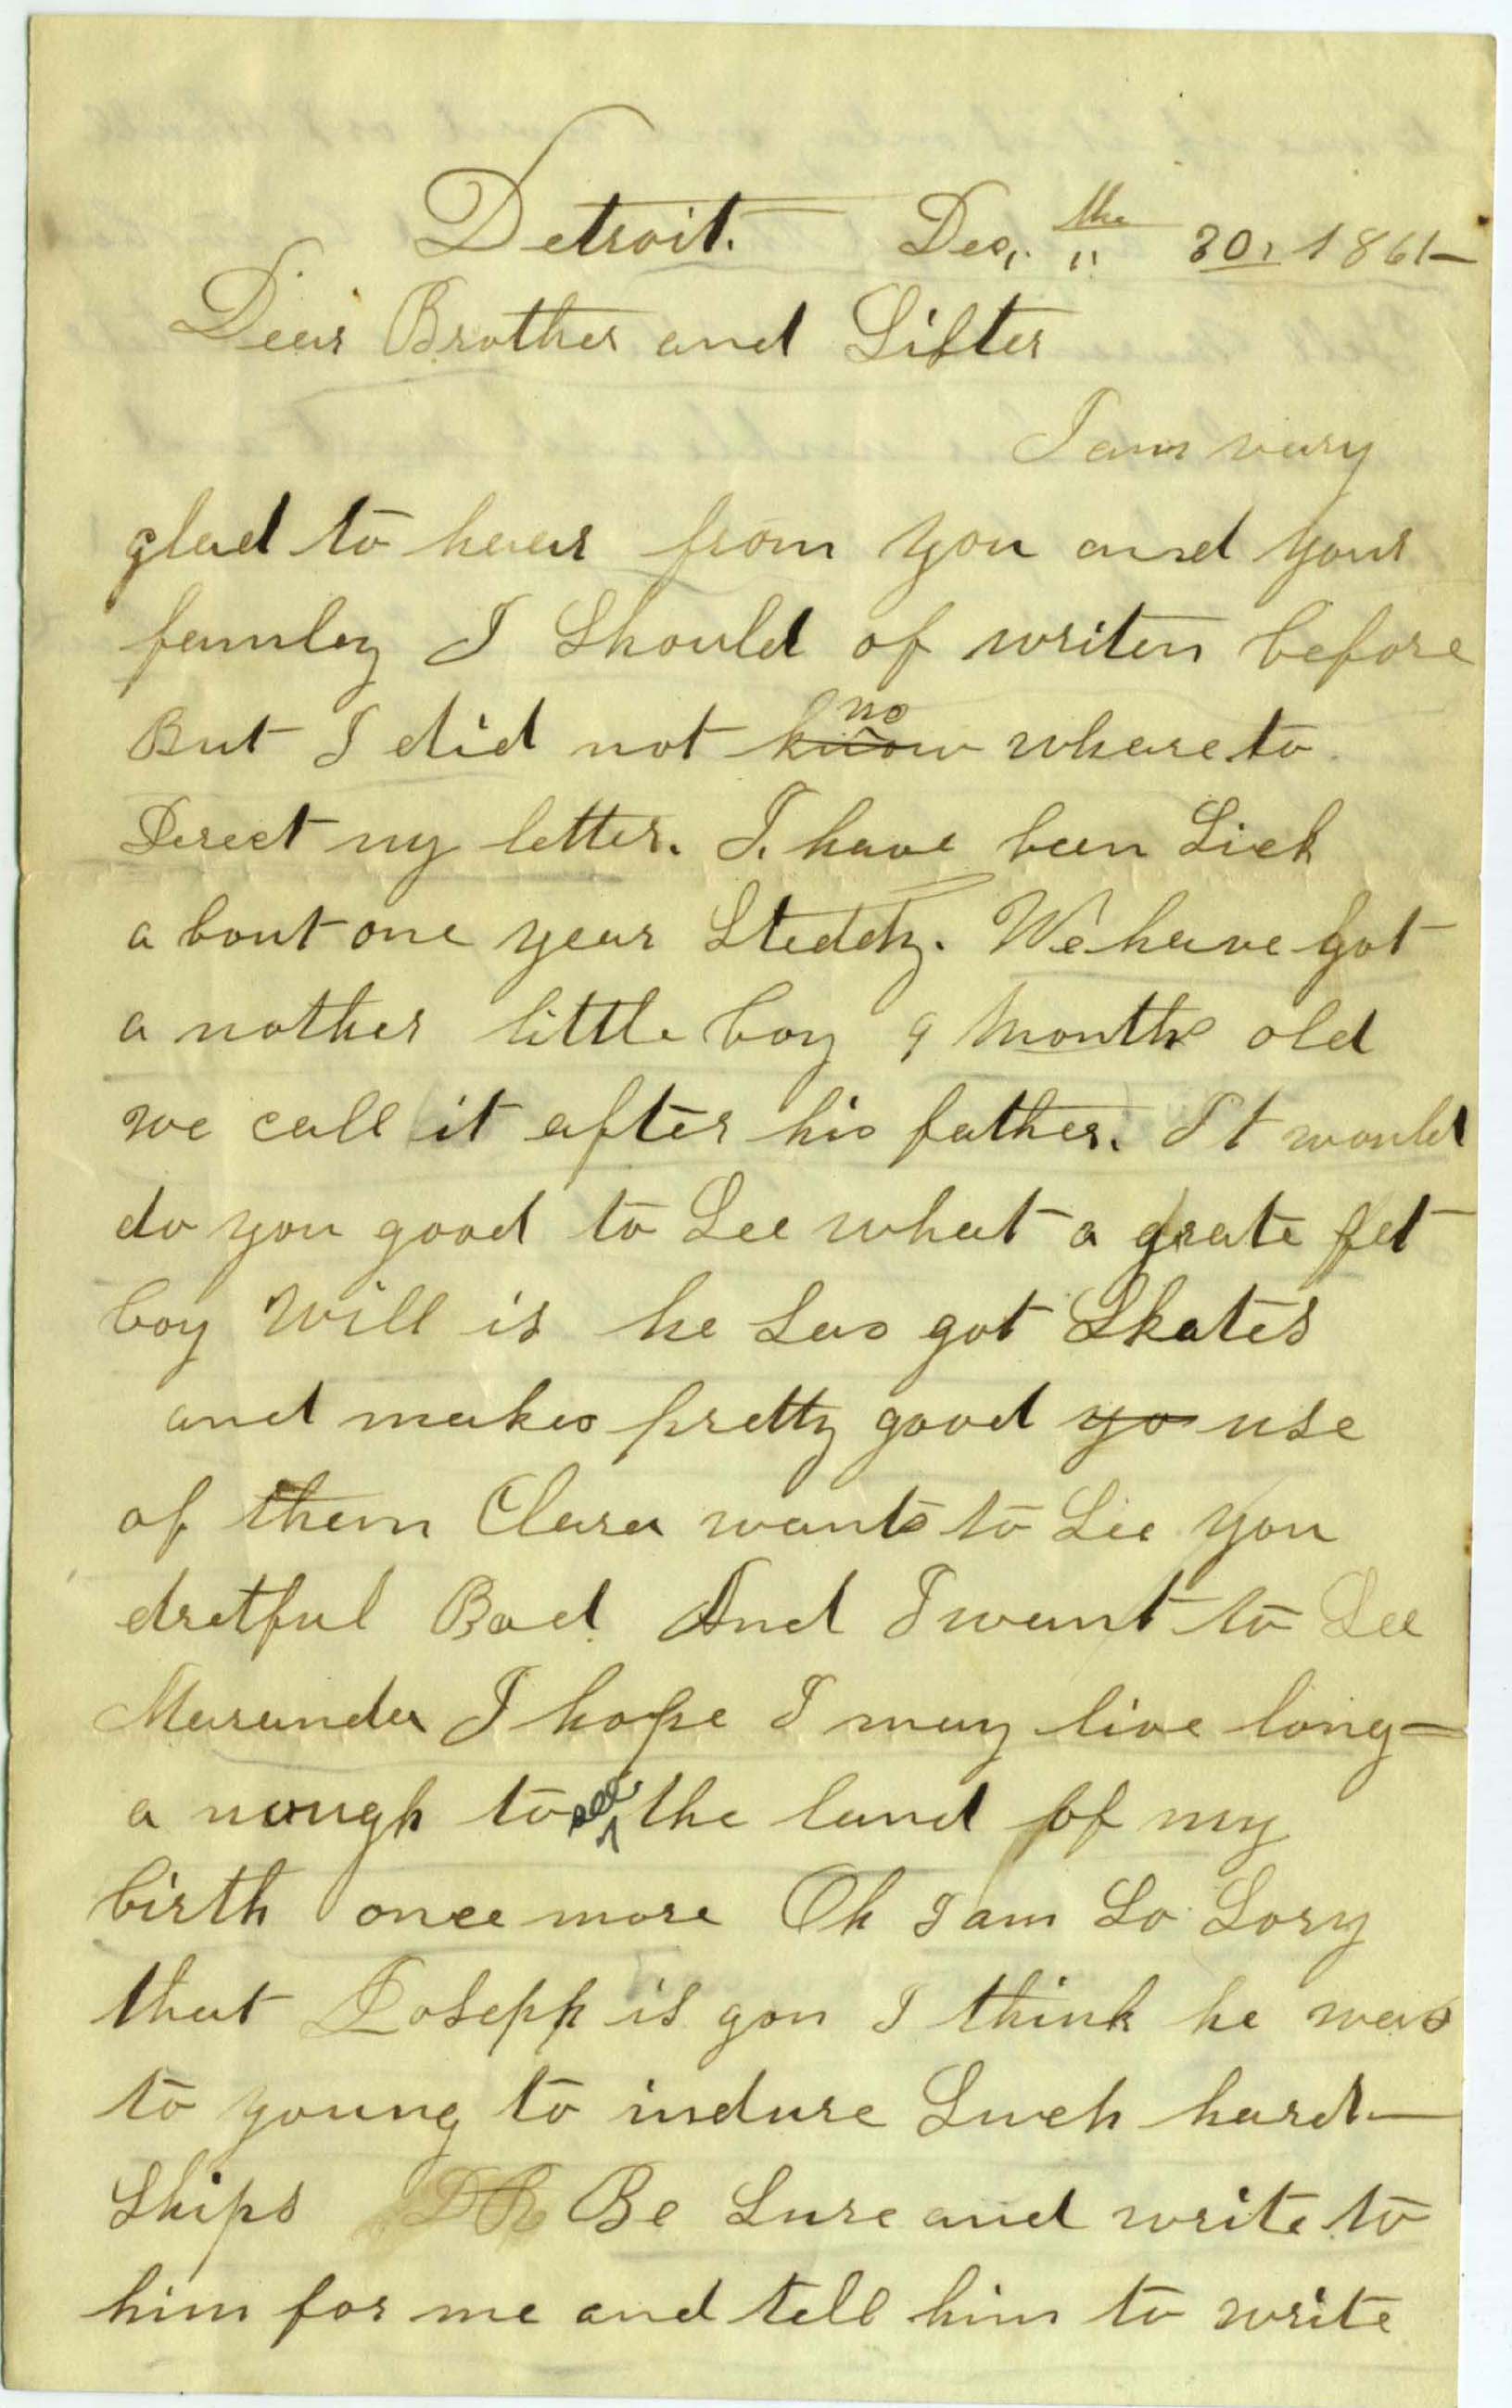 Detroit. Dec,. the 30, 1861
Dear Brother and Sister
I am vary
glad to hear from you and your
famley I Should of writen before
But I did not know no whare to
Derect my letter. I have been Sick
a bout one year Steddy. We have got
a nother little boy 9 Months old
we call it after his father. It would
do you good to See what a grate fat
boy Will is he has got Skates
and makes pretty good yo use
of them Clara wants to See you
dretful Bad And I want to See
Maranda I hope I may live long
a nough to see the land of my
birth once more Oh I am So Sory
that Joseph is gon I think he was
to young to indure Such hard-
Ships Be Sure and write to
him for me and tell him to write